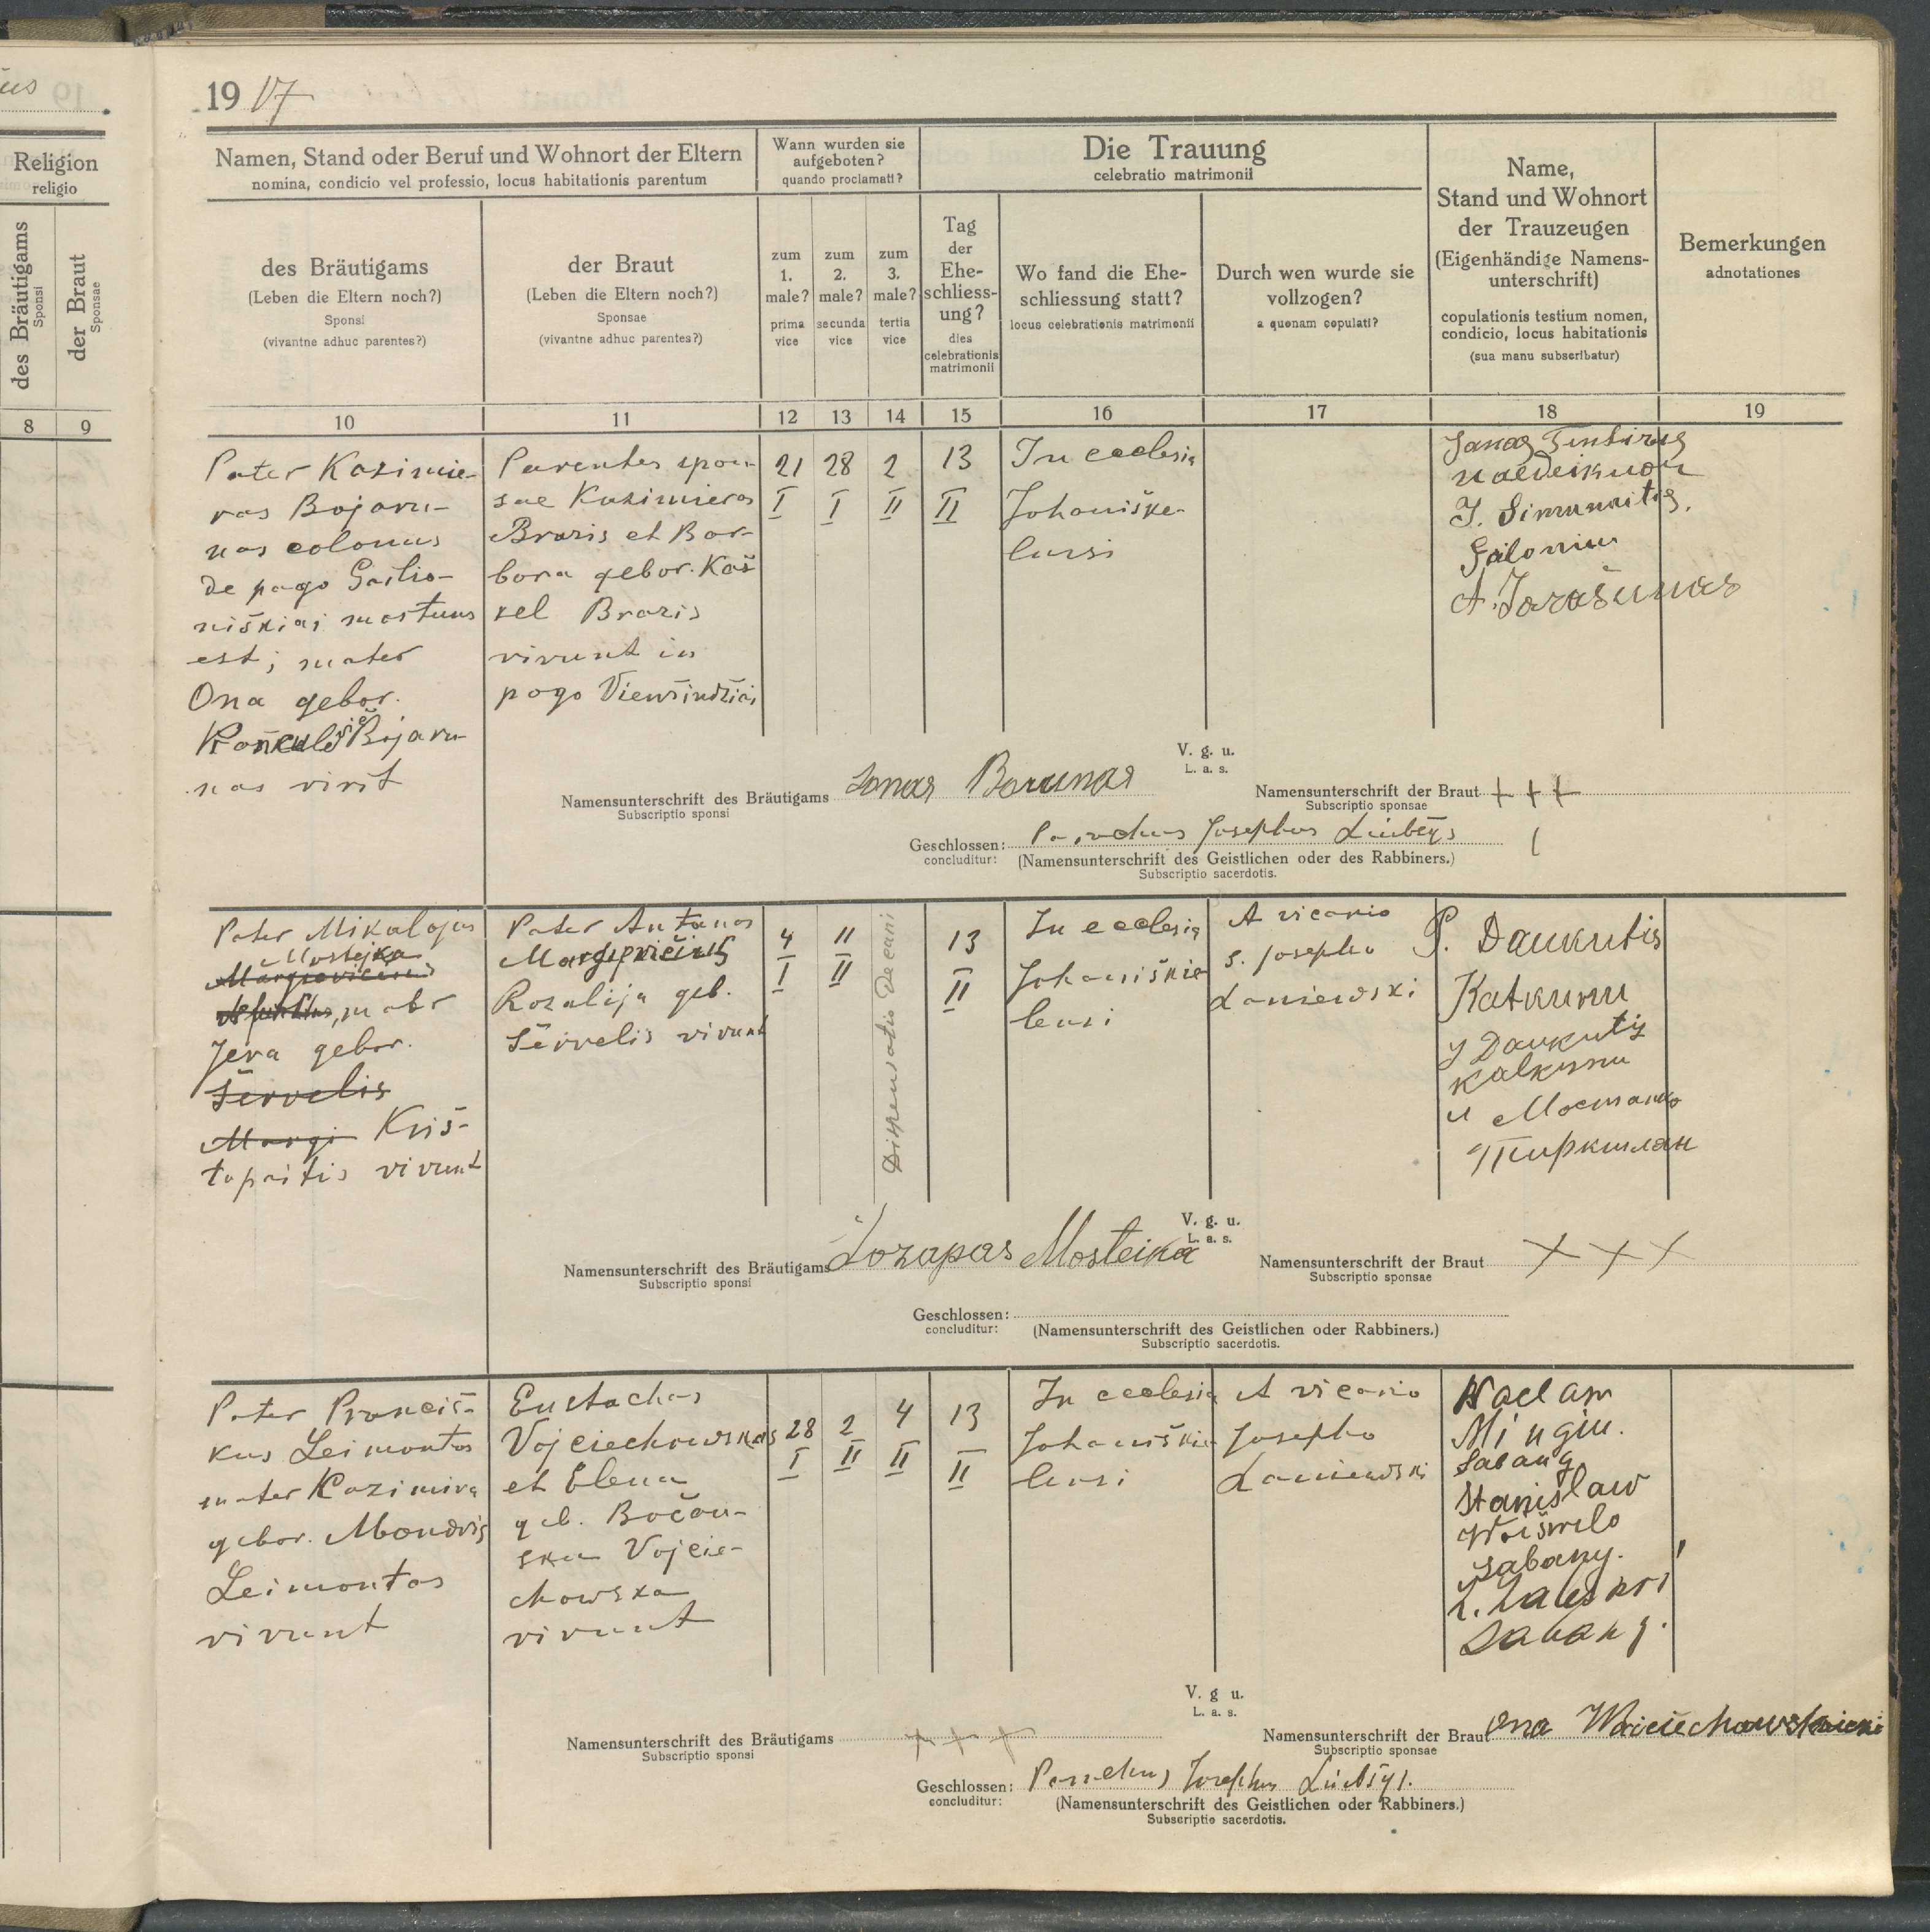 us
Religion
religio
des Bräutigams
Sponsi
der Braut
Sponsae
8 9
1917
Namen, Stand oder Beruf und Wohnort der Eltern
nomina, condicio vel professio, locus habitationis parentum
Wann wurden sie
aufgeboten?
quando proclamati?
Die Trauung
celebratio matrimonii
Name,
Stand und Wohnort
der Trauzeugen
(Eigenhändige Namens-
unterschrift)
copulationis testium nomen,
condicio, locus habitationis
(sua manu subscribatur)
Bemerkungen
adnotationes
des Bräutigams
(Leben die Eltern noch?)
Sponsi
(vivantne adhuc parentes?)
der Braut
(Leben die Eltern noch?)
Sponsae
(vivantne adhuc parentes?)
zum
1.
male?
prima
vice
zum
2.
male?
secunda
vice
zum
3.
male?
tertia
vice
Tag
der
Ehe-
schliess-
ung?
dies
celebrationis
matrimonii
Wo fand die Ehe-
schliessung statt?
locus celebrationis matrimonii
Durch wen wurde sie
vollzogen?
a quonam copulati?
10 11 12 13 14 15 16 17 18 19
Pater Kazimie-
ras Bojaru-
nas colonus
de pago Gailio-
niškiai mortuus
est; mater
Ona gebor.
Bojaru-
nas vivit
Parentes spon-
sae Kazimieras
Brazis et Bar-
bora gebor. Kaš
kel Brazis
vivunt in
pago
21
I
28
I
2
II
13
II
In ecclesia
Johaniške-
lensi
Janas
J. Simunaitis,
A. Jarašunas
V. g. u.
L. a. s.
Namensunterschrift des Bräutigams Jonas Barunas
Subscriptio sponsi
Namensunterschrift der Braut + + +
Subscriptio sponsae
Geschlossen: Parochus Josephus
concluditur: (Namensunterschrift des Geistlichen oder des Rabbiners.)
Subscriptio sacerdotis.
Pater Mikalojus
Mostejka
mater
Jeva gebor.
Šervelis
Margi Kriš-
topaitis vivunt
Pater Antanas
Margevičius
Rozalija geb.
Šervelis vivunt
4
I
11
II
Dispensatio Decani
13
II
In ecclesia
Johaniškie
lensi
A vicario
s. Josepho
Laniewski
P. Daukutis
Katkunu
J Daukutis
Kalkunu
V. g. u.
L. a. s.
Namensunterschrift des Bräutigams Jozapas Mosteika
Subscriptio sponsi
Namensunterschrift der Braut + + +
Subscriptio sponsae
Geschlossen:
concluditur: (Namensunterschrift des Geistlichen oder Rabbiners.)
Subscriptio sacerdotis.
Pater Pranciš-
kus Leimontas
mater Kazimira
gebor.
Leimontas
vivunt
Eustachas
Vojciechowskas
et Elena
geb. Bočan-
ska Vojcie-
chowska
vivunt
28
I
2
II
4
II
13
II
In ecclesia
Johaniškie
lensi
A vicario
Josepho
Laniewski
Waclaw
Mingin.
Stanislaw
V. g u.
L. a. s.
Namensunterschrift des Bräutigams + + +
Subscriptio sponsi
Namensunterschrift der Braut Ona
Subscriptio sponsae
Geschlossen: Parochus Josephus
concluditur: (Namensunterschrift des Geistlichen oder Rabbiners.)
Subscriptio sacerdotis.